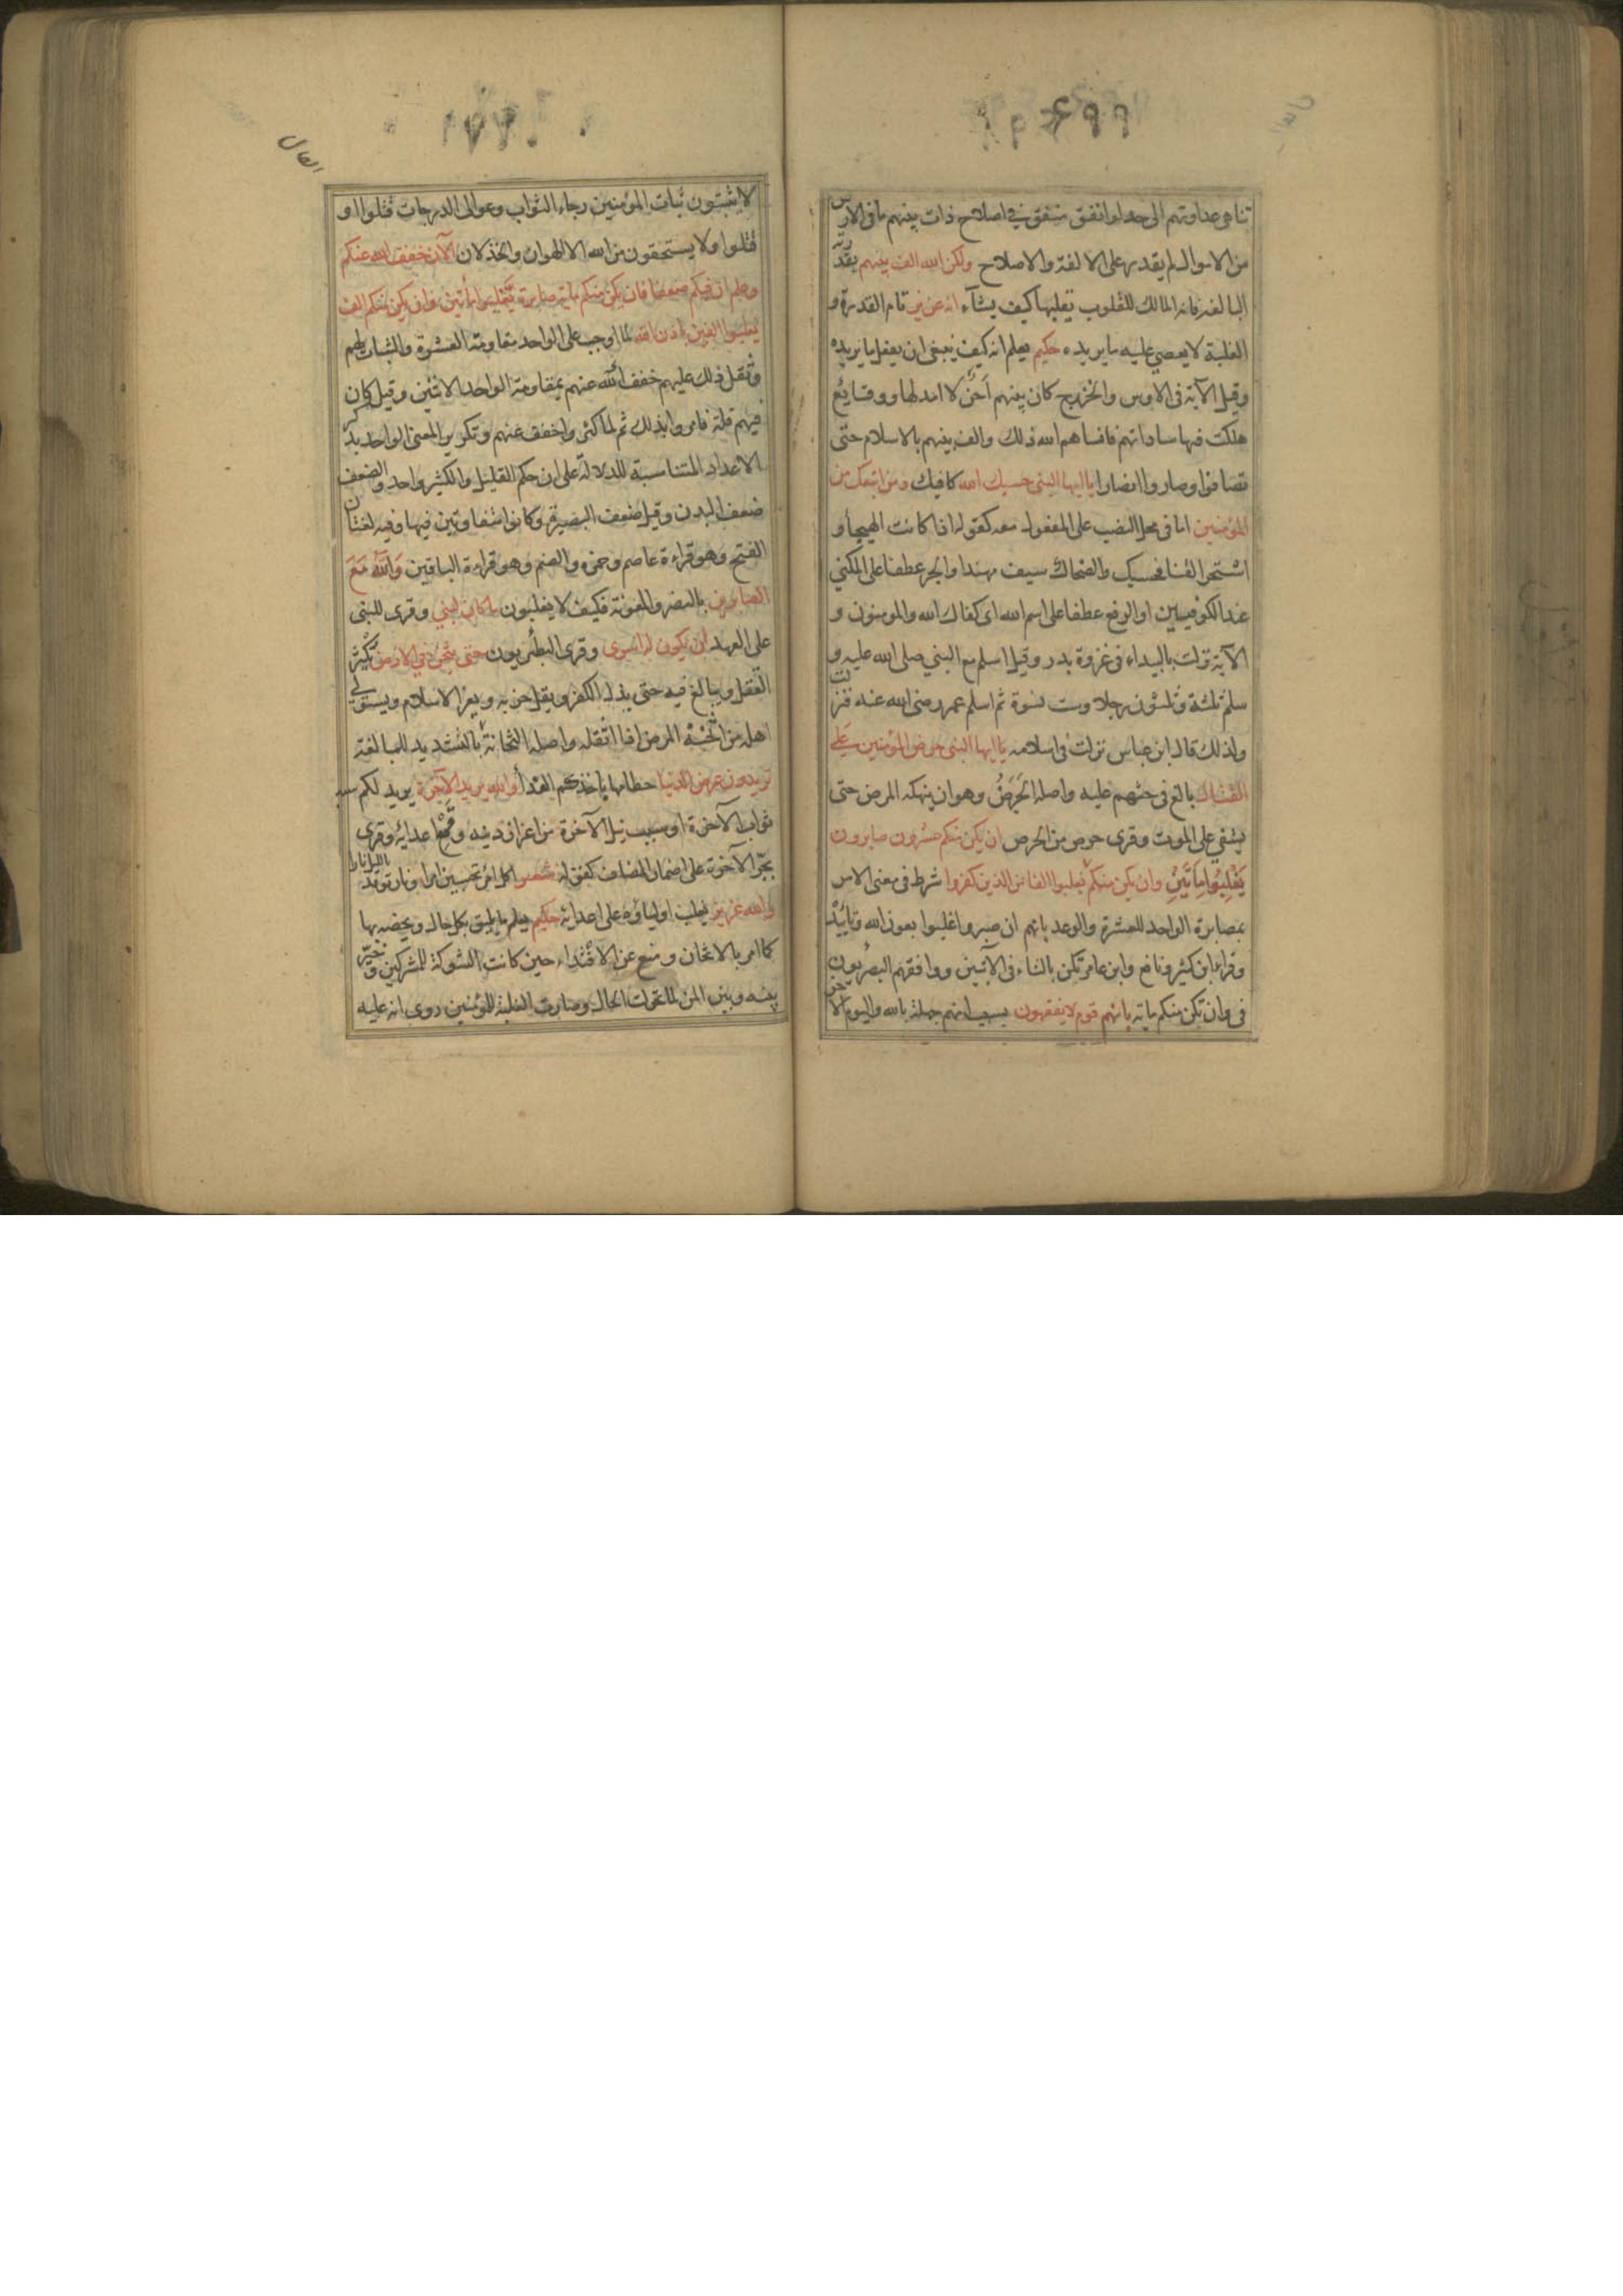 تناهى عداوتهم الى حد لو انفق منفق في اصلاح ذات بينهم ما فى الارض
من الاموال لم يقدر على الالفة والاصلاح ولكن الله الف بينهم بقدرته
البالغة فانه المالك للقلوب يقلبها كيف يشآء انه عزيز تام القدرة و
الغلبة لا يعصي عليه ما يريده حكيم يعلم انه كيف ينبغى ان يفعل ما يريده
وقيل الآية فى الاوس والخزرج كان بينهم احن لا امد لها ووقايع
هلكت فيها ساداتهم فانساهم الله ذلك والف بينهم بالاسلام حتى
تصافوا وصاروا انصارا يا ايها النبى حسبك الله كافيك ومن اتبعك من
المؤمنين اما فى محل النصب على المفعول معه كقوله اذا كانت الهيجاء و
اشتجر القنا فحسبك والضحاك سيف مهند او الجر عطفا على المكنى
عند الكوفيين او الرفع عطفا على اسم الله اى كفاك الله والمومنون و
الآية نزلت بالبيداء فى غزوة بدر وقيل اسلم مع النبي صلى الله عليه و
سلم ثلثة وثلثون رجلا وست نسوة ثم اسلم عمر رضى الله عنه فنزلت
ولذلك قال ابن عباس نزلت فى اسلامه يا ايها النبى حرض المؤمنين على
القتال بالغ فى حثهم عليه واصله الحرض وهو ان ينهكه المرض حتى
يشفي على الموت وقرى حرص من الحرص ان يكن منكم عشرون صابرون
يغلبوا مأتين وان يكن منكم يغلبوا الفا من الذين كفروا شرط فى معنى الامر
بمصابرة الواحد للعشرة والوعد بانهم ان صبروا غلبوا بعون الله وتاييده
وقرا ابن كثير ونافع وابن عامر تكن بالتاء فى الآيتين ووافقهم البصريون
فى وان تكن منكم ماية بانهم قوم لا يفقهون بسبب انهم جهلة بالله واليوم الآخر
لا يثبتون ثبات المؤمنين رجاء الثواب وعوالى الدرجات قتلوا او
قتلوا ولا يستحقون من الله الا الهوان والخذلان الآن خفف الله عنكم
وعلم ان فيكم ضعفا فان يكن منكم ماية صابرة يغلبوا مأتين وان يكن منكم الف
يغلبوا الفين باذن الله لما اوجب على الواحد مقاومة العشرة والثبات لهم
وثقل ذلك عليهم خفف الله عنهم بمقاومة الواحد الاثنين وقيل كان
فيهم قلة فامروا بذلك ثم لما كثروا خفف عنهم وتكرير المعنى الواحد بذكر
الاعداد المتناسبة للدلالة على ان حكم القليل والكثير واحد والضعف
ضعف البدن وقيل ضعف البصيرة وكانوا متفاوتين فيها وفيه لغتان
الفتح وهو قراءة عاصم وحمزه والضم وهو قراءة الباقين والله مع
الصابرين بالنصر والمعونة فكيف لا يغلبون ما كان لنبي وقرى للنبى
على العهد ان يكون له اسرى وقرى البصريون حتى يثخن في الارض يكثر
القتل ويبالغ فيه حتى يذل الكفر ويقل حزبه ويعز الاسلام ويستولي
اهله من اثخنه المرض اذا اثقله واصله الثخانة بالتشديد للمبالغة
تريدون عرض الدنيا حطامها باخذكم الفدا والله يريد الآخرة يريد لكم
ثواب الآخرة او سبب نيل الآخرة من اعزاز دينه وقمع اعدائه وقرى
بجر الآخرة على اضمار المضاف كقوله اكل امرئ تحسبين امرا ونار توقد بالليل نارا
والله عزيز يغلب اولياؤه على اعدائه حكيم يعلم ما يليق بكل حال ويخصه بها
كما امر بالاثخان ومنع عن الافتداء حين كانت الشوكة للمشركين وخير
بينه وبين المن لما تحولت الحال وصارت الغلبة للمؤمنين روى انه عليه